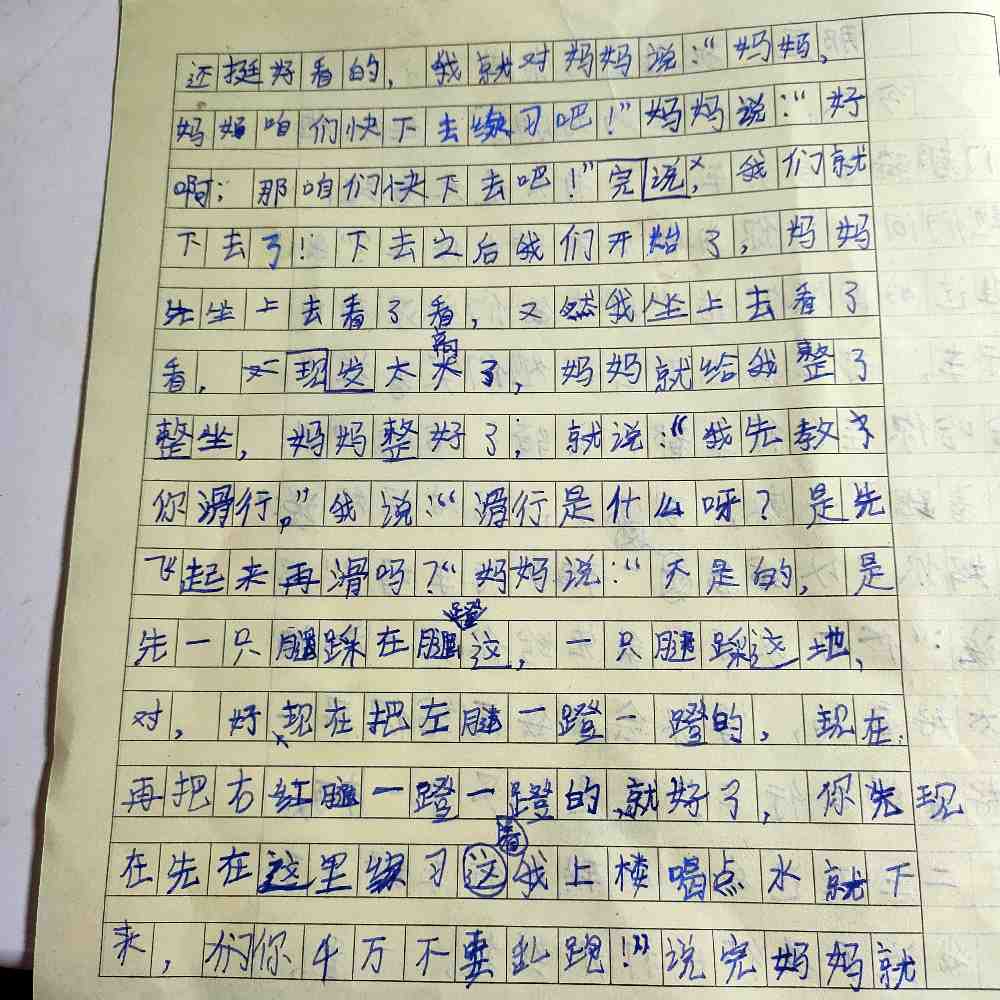 还挺好看的，我就对妈妈说：“妈妈，
妈妈咱们快下去练习吧！”妈妈说：“好
啊；那咱们快下去吧！”完说，我们就
下去了！下去之后我们开始了，妈妈
先坐上去看了看，又然我坐上去看了
看，现发太高大了，妈妈就给我整了
整坐，妈妈整好了；就说：“我先教
你滑行。”我说：“滑行是什么呀？是先
飞起来再滑吗？“妈妈说：“不是的，是
先一只腿踩在腿蹬这，一只腿踩这地，
对，好，现在把左腿一蹬一蹬的，现在，
再把右腿一蹬一蹬的，就好了，你先现
在先在这里练习这看我上楼喝点水就下
来，们你千万不要乱跑！”说完妈妈就